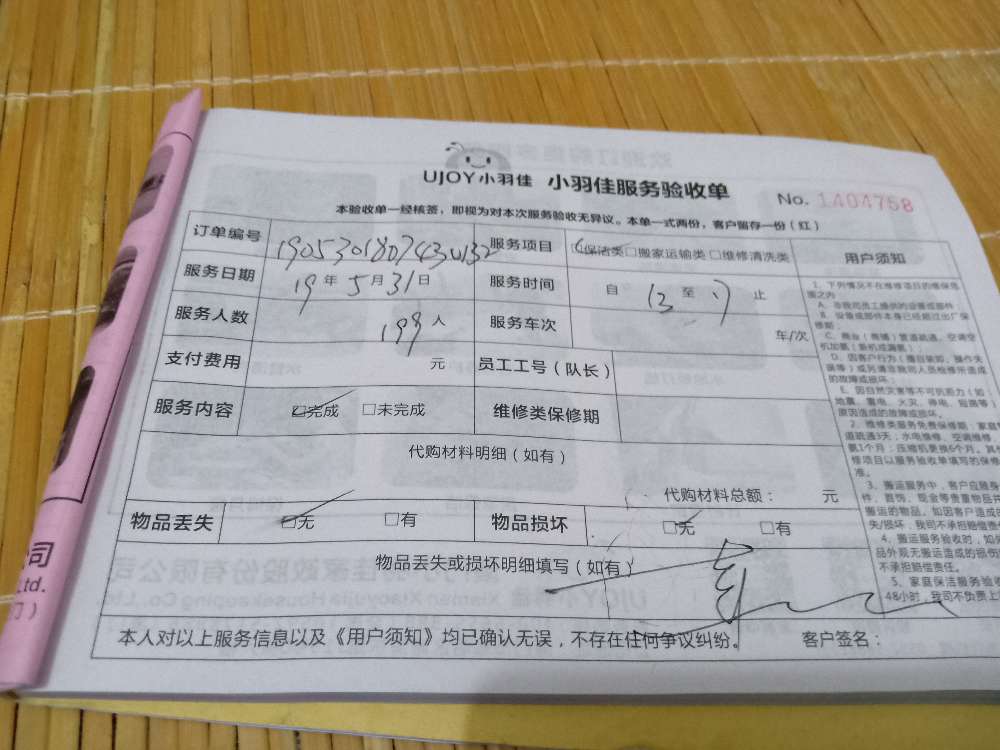 UJOY小羽佳 小羽佳服务验收单 No. 1404758
本验收单一经核签，即视为对本次服务验收无异议。本单一式两份，客户留存一份（红）
订单编号 服务项目 □保洁类□搬家运输类□维修清洗类 用户须知
服务日期 19年5月31日 服务时间 自 13 至 17 止
服务人数 199 人 服务车次 车/次
支付费用 元 员工工号（队长）
服务内容 □完成 □未完成 维修类保修期
代购材料明细（如有）
代购材料总额： 元
物品丢失 □无 □有 物品损坏 □无 □有
物品丢失或损坏明细填写（如有）
本人对以上服务信息以及《用户须知》均已确认无误，不存在任何争议纠纷。 客户签名：
1、下列情况不在维修项目的维保范
围之内：
A、非我司员工提供的设备或部件
B、设备或部件本身已经超过出厂保
修期；
D、因客户行为（擅自装卸，操作失
误等）或另请非我司人员检修所造成
的故障或损坏；
E、因自然灾害等不可抗能力（如：
地震、雷电、火灾、停电、短路等）
原因造成的故障或损坏。
2、维修类服务免费保修期：家庭管
道疏通3天；水电维修、空调维修
氨1个月；压缩机更换6个月。其
修项目以服务验收单填写的保修
准。
3、搬运服务中，客户应随身
件、首饰、现金等贵重物品
搬运的物品，如因客户造成的
失/损坏，我司不承担赔偿责
4、搬运服务验收时，如外
品外观无搬运造成的损伤
不承担赔偿责任。
5、家庭保洁服务验收
48小时，我司不负责上
司
Ltd.
门）